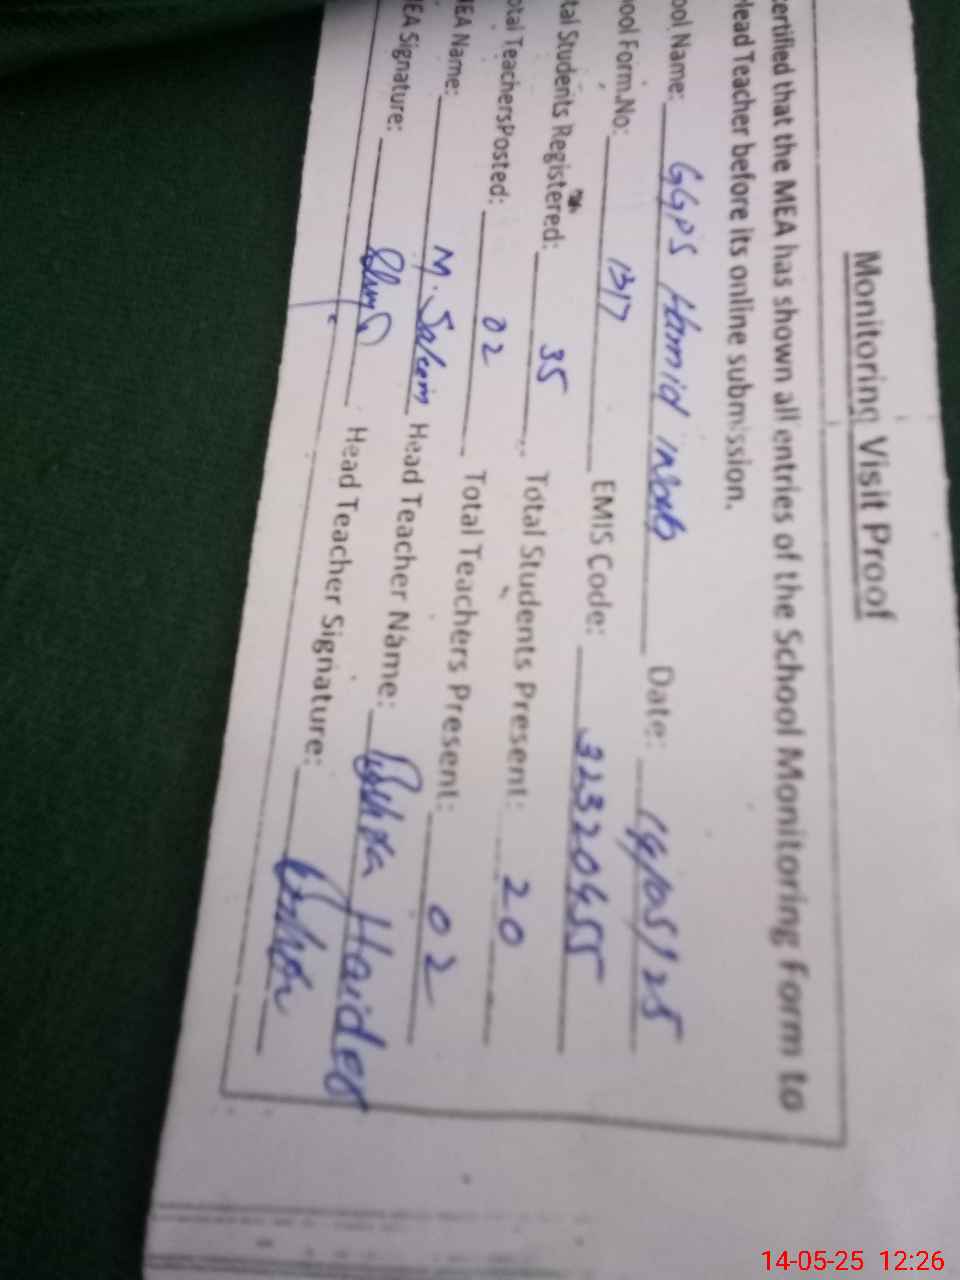 Monitoring Visit Proof
certified that the MEA has shown all entries of the School Monitoring Form to
Head Teacher before its online submission.
ool Name: GGPS Hamid Date: 14/05/25
ool Form.No: 1317 EMIS Code: 32320455
tal Students Registered: 35 Total Students Present: 20
otal TeachersPosted: 02 Total Teachers Present: 02
MEA Name: M. Saleem Head Teacher Name: Haider
MEA Signature: Head Teacher Signature:
14-05-25 12:26